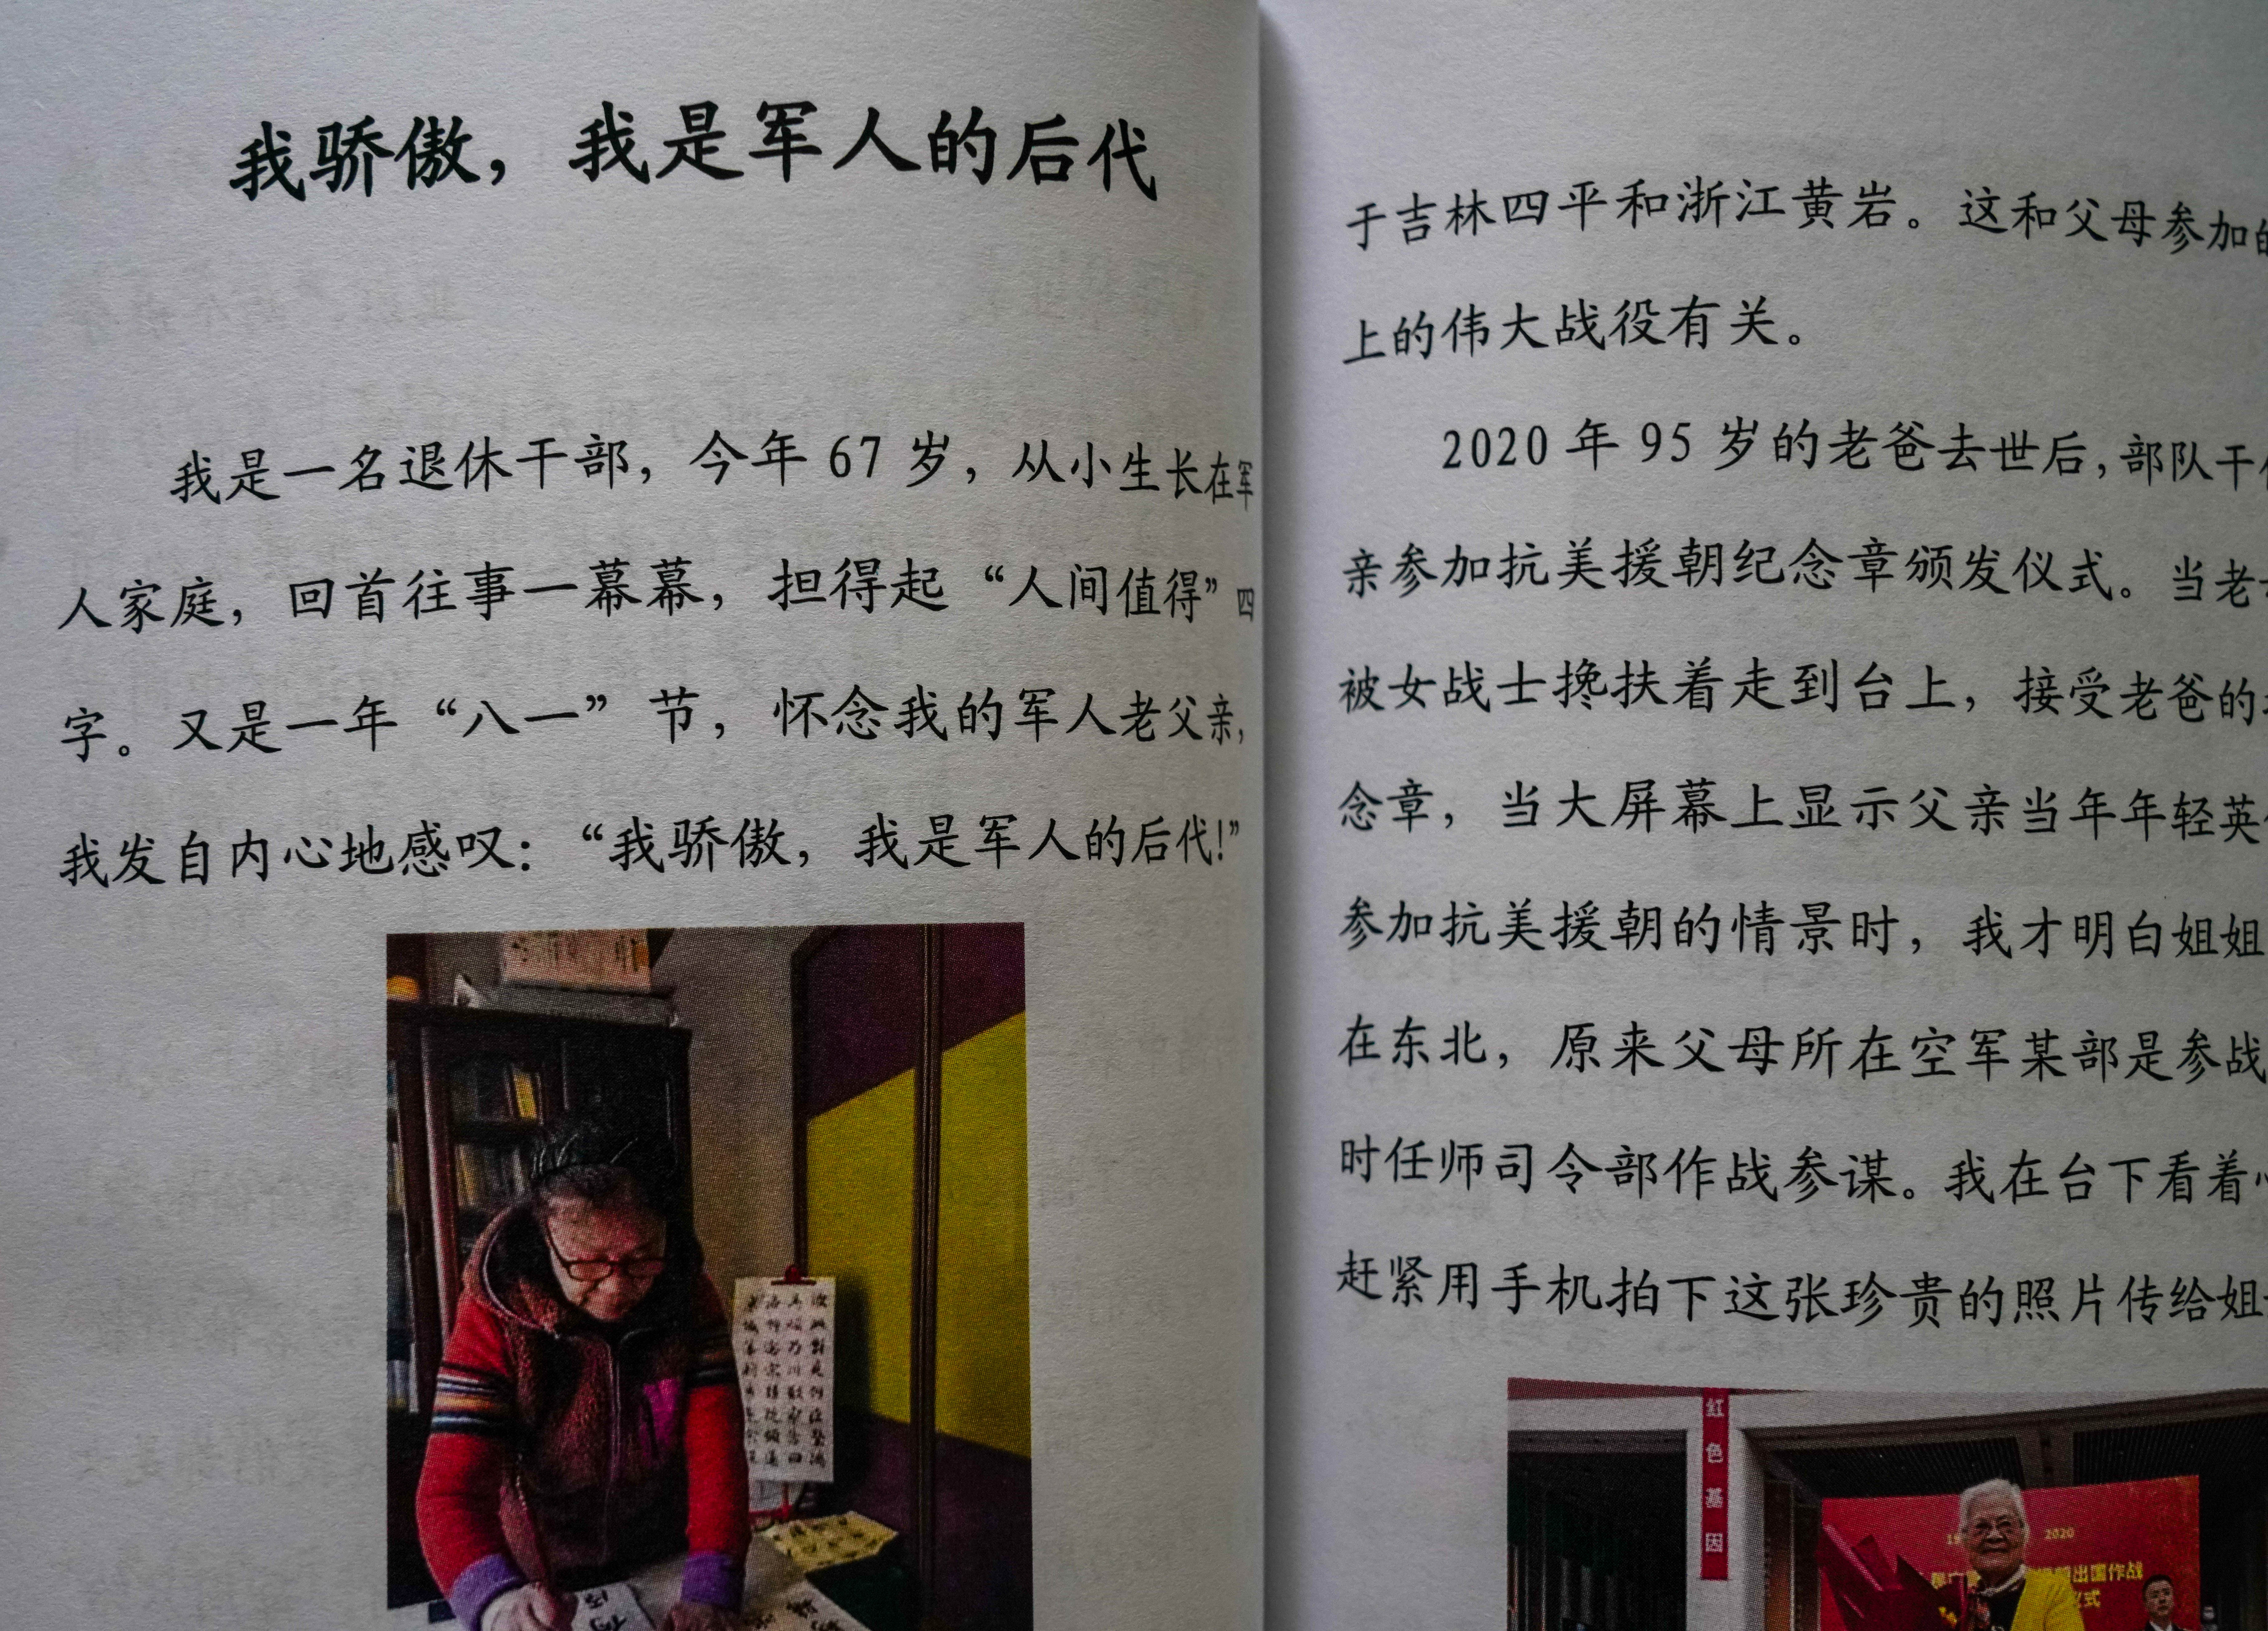 我骄傲，我是军人的后代
我是一名退休干部，今年 67 岁，从小生长在军
人家庭，回首往事一幕幕，担得起“人间值得”四
字。又是一年“八一”节，怀念我的军人老父亲，
我发自内心地感叹：“我骄傲，我是军人的后代！”
于吉林四平和浙江黄岩。这和父母参加的
上的伟大战役有关。
2020 年 95 岁的老爸去世后，部队干
亲参加抗美援朝纪念章颁发仪式。当老
被女战士搀扶着走到台上，接受老爸的
念章，当大屏幕上显示父亲当年年轻英
参加抗美援朝的情景时，我才明白姐姐
在东北，原来父母所在空军某部是参战
时任师司令部作战参谋。我在台下看着
赶紧用手机拍下这张珍贵的照片传给姐
红色基因
2020
出国作战
仪式